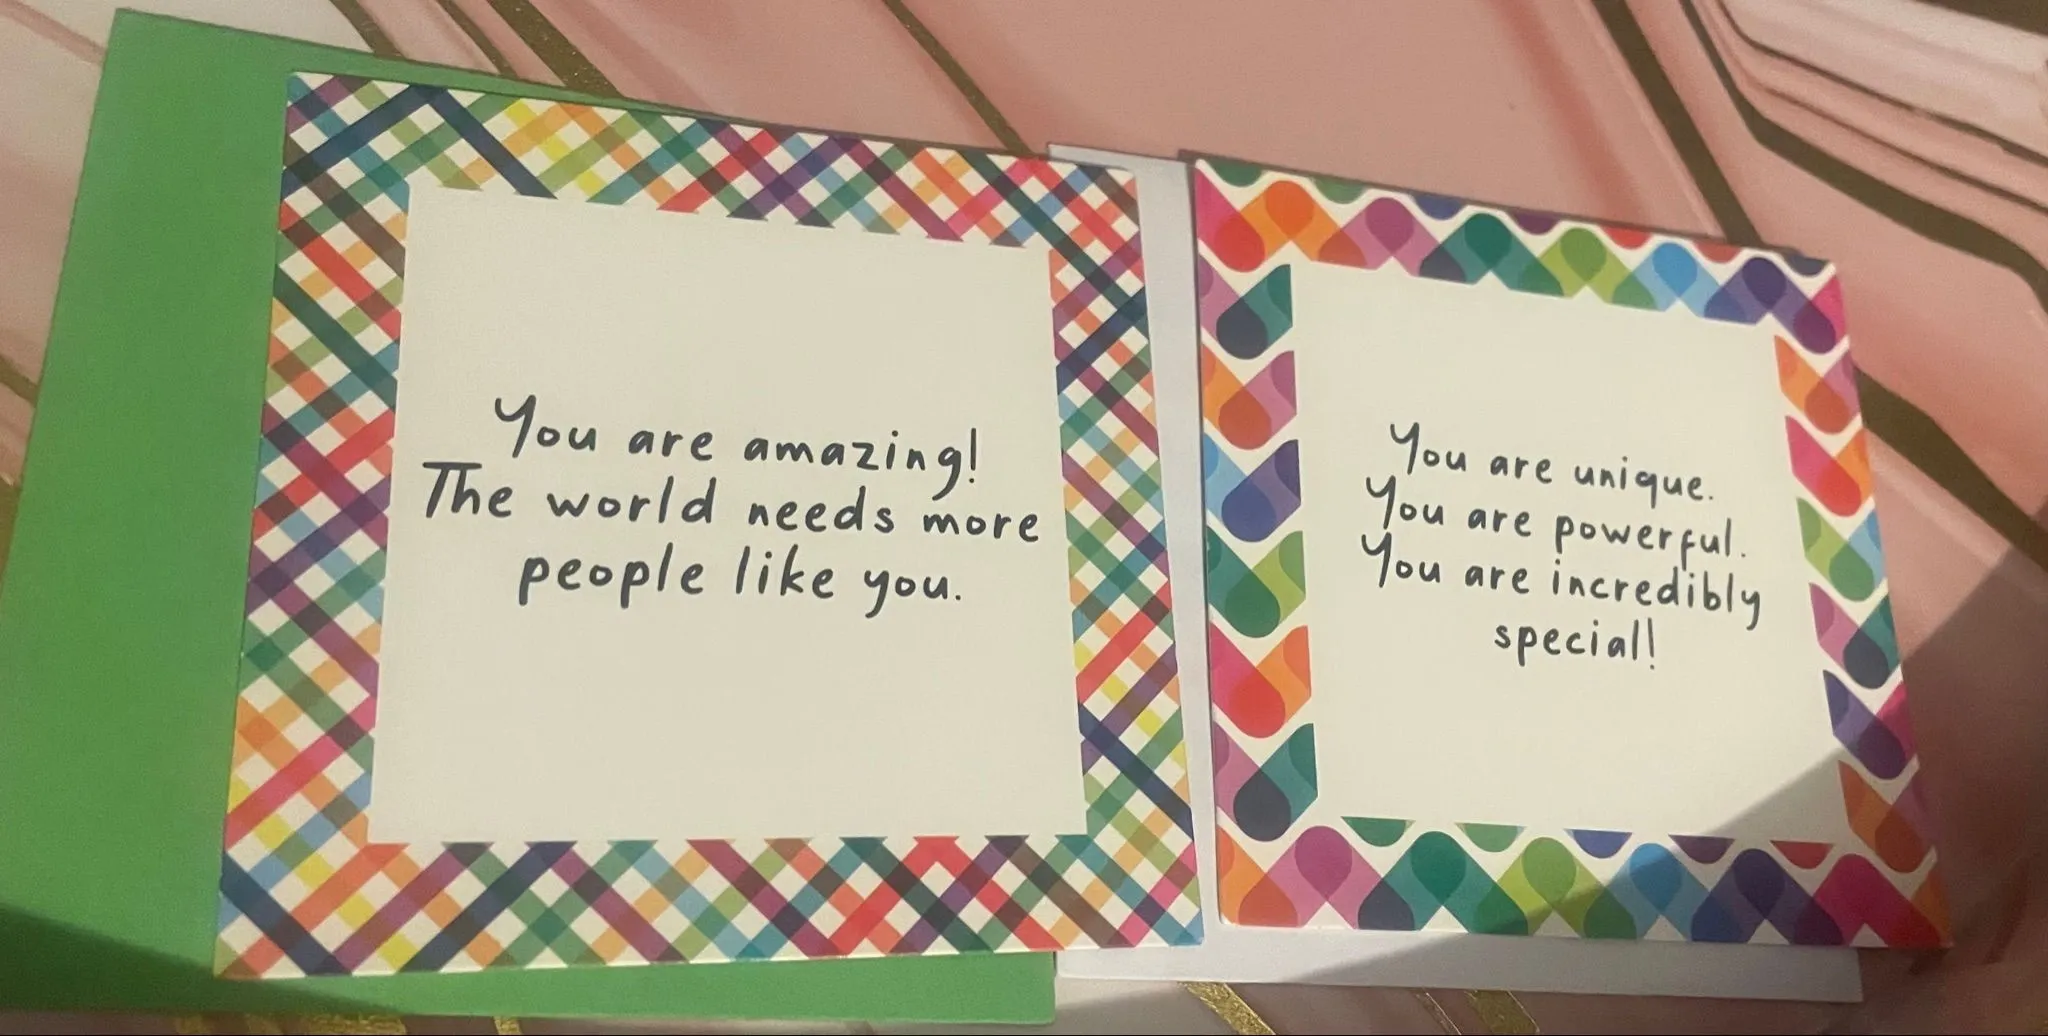 You are amazing!
The world needs more
people like you.
You are unique.
You are powerful.
You are incredibly
special!